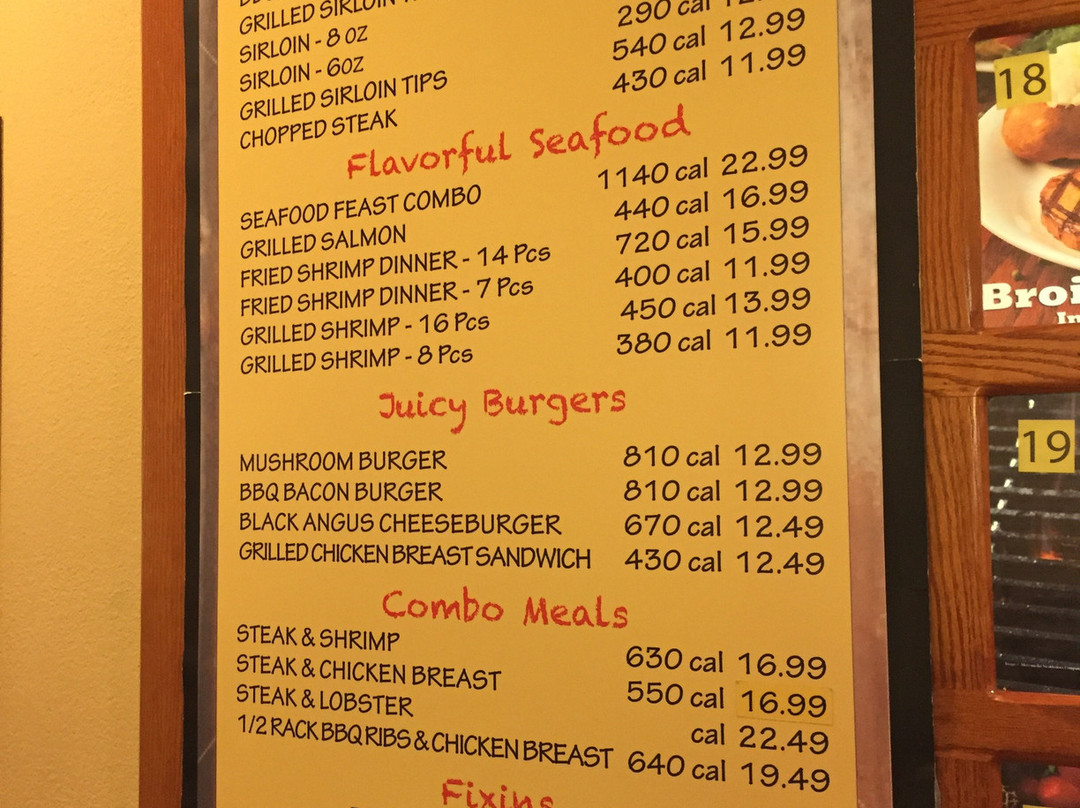 GRILLED SIRLOIN
SIRLOIN - 8 OZ
SIRLOIN - 6OZ 290 cal
GRILLED SIRLOIN TIPS 540 cal 12.99
CHOPPED STEAK 430 cal 11.99
Flavorful Seafood
SEAFOOD FEAST COMBO 1140 cal 22.99
GRILLED SALMON 440 cal 16.99
FRIED SHRIMP DINNER - 14 Pcs 720 cal 15.99
FRIED SHRIMP DINNER - 7 Pcs 400 cal 11.99
GRILLED SHRIMP - 16 Pcs 450 cal 13.99
GRILLED SHRIMP - 8 Pcs 380 cal 11.99
Juicy Burgers
MUSHROOM BURGER 810 cal 12.99
BBQ BACON BURGER 810 cal 12.99
BLACK ANGUS CHEESEBURGER 670 cal 12.49
GRILLED CHICKEN BREAST SANDWICH 430 cal 12.49
Combo Meals
STEAK & SHRIMP 630 cal 16.99
STEAK & CHICKEN BREAST 550 cal 16.99
STEAK & LOBSTER cal 22.49
1/2 RACK BBQ RIBS & CHICKEN BREAST 640 cal 19.49
Fixins
18
Broi
In
19